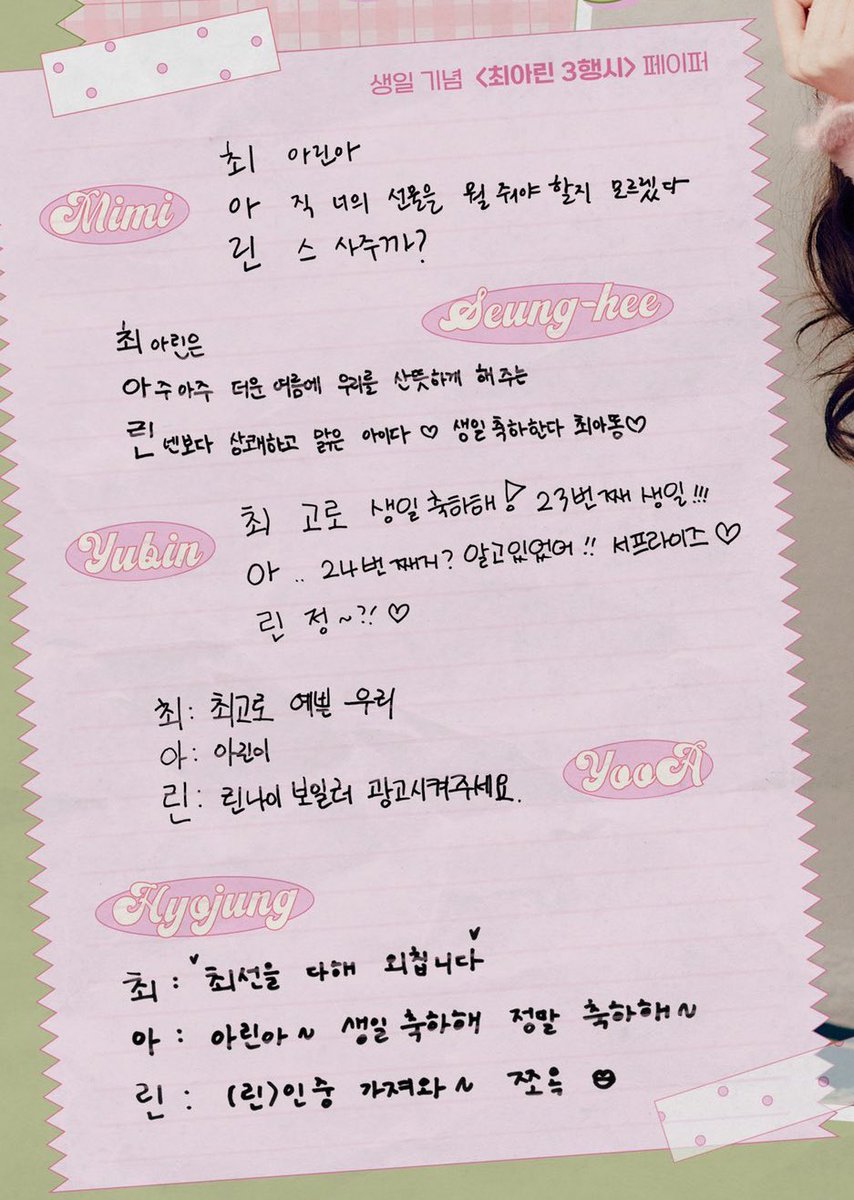 생일 기념 <최아린 3행시> 페이퍼
Mimi
최 아린아
아 직 너의 선물을 뭘 줘야 할지 모르겠다
린 스 사주까?
Seung-hee
최 아린은
아주아주 더운 여름에 우리를 산뜻하게 해주는
린넨보다 상쾌하고 맑은 아이다 ♡ 생일축하한다 최아똥♡
Yubin
최 고로 생일축하해! 23번째 생일!!!
아 .. 24번째거? 알고있었어!! 서프라이즈♡
린 정~?! ♡
YooA
최: 최고로 예쁜 우리
아: 아린이
린: 린나이 보일러 광고시켜주세요.
Hyojung
최 : 최선을 다해 외칩니다
아 : 아린아~ 생일축하해 정말 축하해~
린 : (린)인중 가져와~ 쪼옥